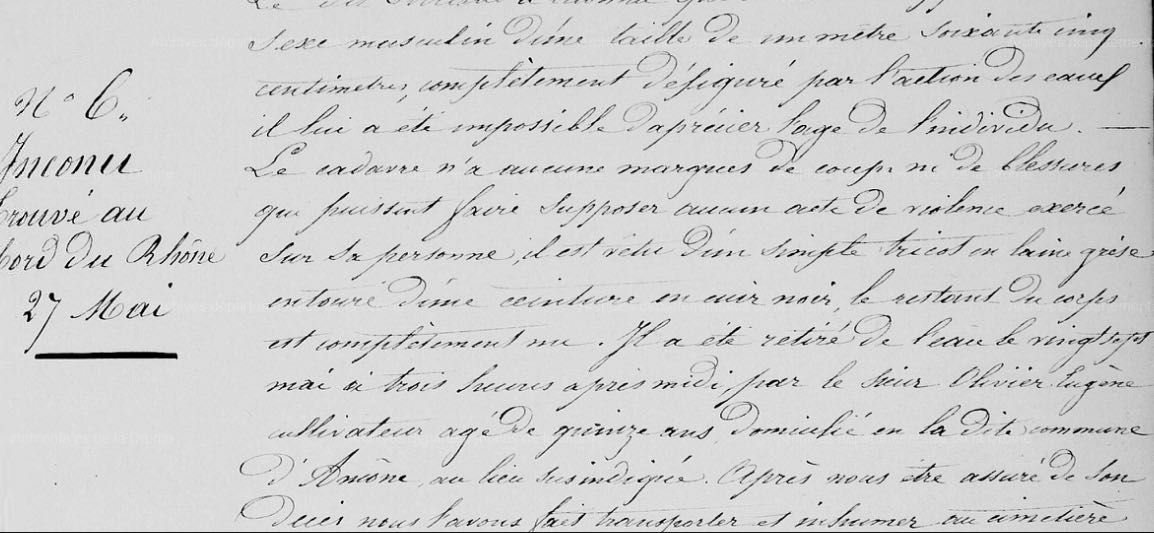 N° 6.
Inconu
trouvé au
bord du Rhône
27 Mai
sexe masculin d'une taille de un mètre soixante cinq
centimetres, complètement défiguré par l'action des eaux
il lui a été impossible d'apréçier l'age de l'individu. —
Le cadavre n'a aucune marques de coups ni de blessures
qui puissent faire supposer aucun acte de violence exercé
sur sa personne, il est vêtu d'un simple tricot en laine grése
entouré d'une ceinture en cuir noir, le restant du corps
est complètement nu. Il a été retiré de l'eau le vingt sept
mai à trois heures après midi, par le sieur Olivier Eugène
cultivateur agé de quinze ans, domicilié en la dite commune
d'Ancône, au lieu sus indiquée. Après nous être assuré de son
décès nous l'avons fait transporter et inhumer au cimetière